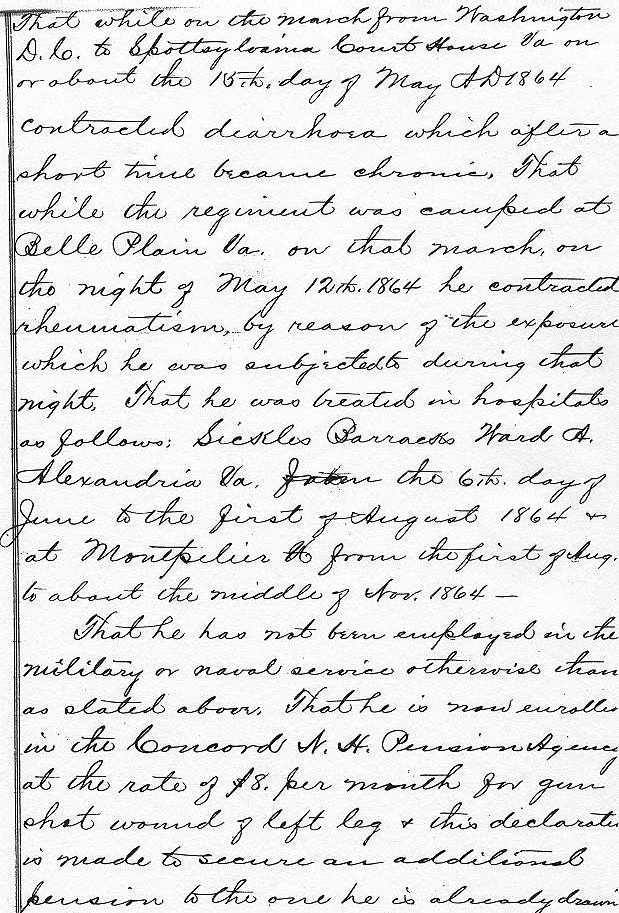 That while on the march from Washington
D.C. to Spottsylvania Court House Va on
or about the 15th. day of May AD 1864
contracted diarrhoea which after a
short time became chronic. That
while the regiment was camped at
Belle Plain Va. on that march, on
the night of May 12th. 1864 he contracted
rheumatism, by reason of the exposure
which he was subjected to during that
night. That he was treated in hospitals
as follows: Sickles Barracks Ward A.
Alexandria Va. the 6th. day of
June to the first of August 1864 &
at Montpelier Vt from the first of Aug.
to about the middle of Nov. 1864 —
That he has not been employed in the
military or naval service otherwise than
as stated above. That he is now enrolled
in the Concord N. H. Pension Agency
at the rate of $8. per month for gun
shot wound of left leg & this declaratio
is made to secure an additional
pension to the one he is already drawin